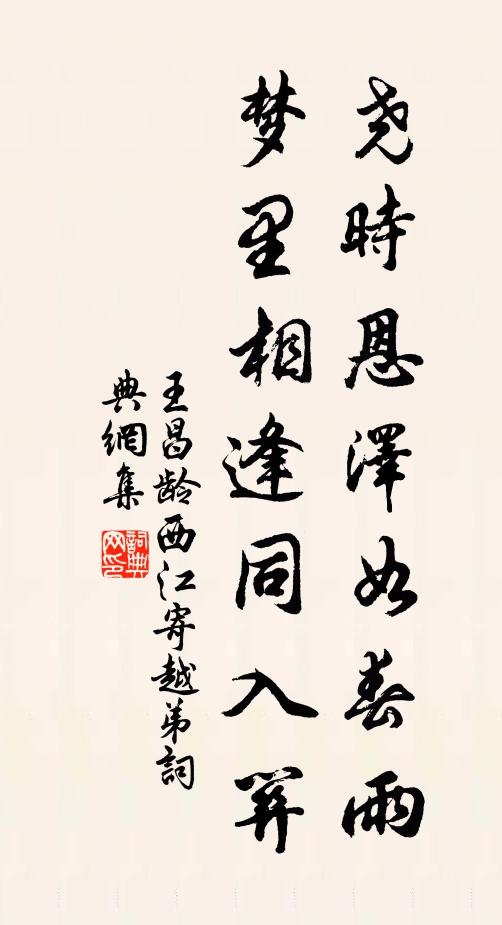 尧時恩澤如春雨
梦里相逢同入關
王昌龄西江寄越弟詞
典網集
詞典网印